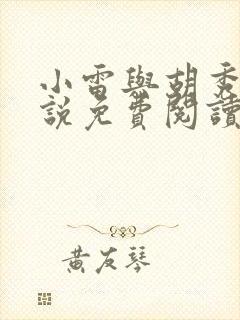 小雷與胡秀
說免費閱讀
黃友琴